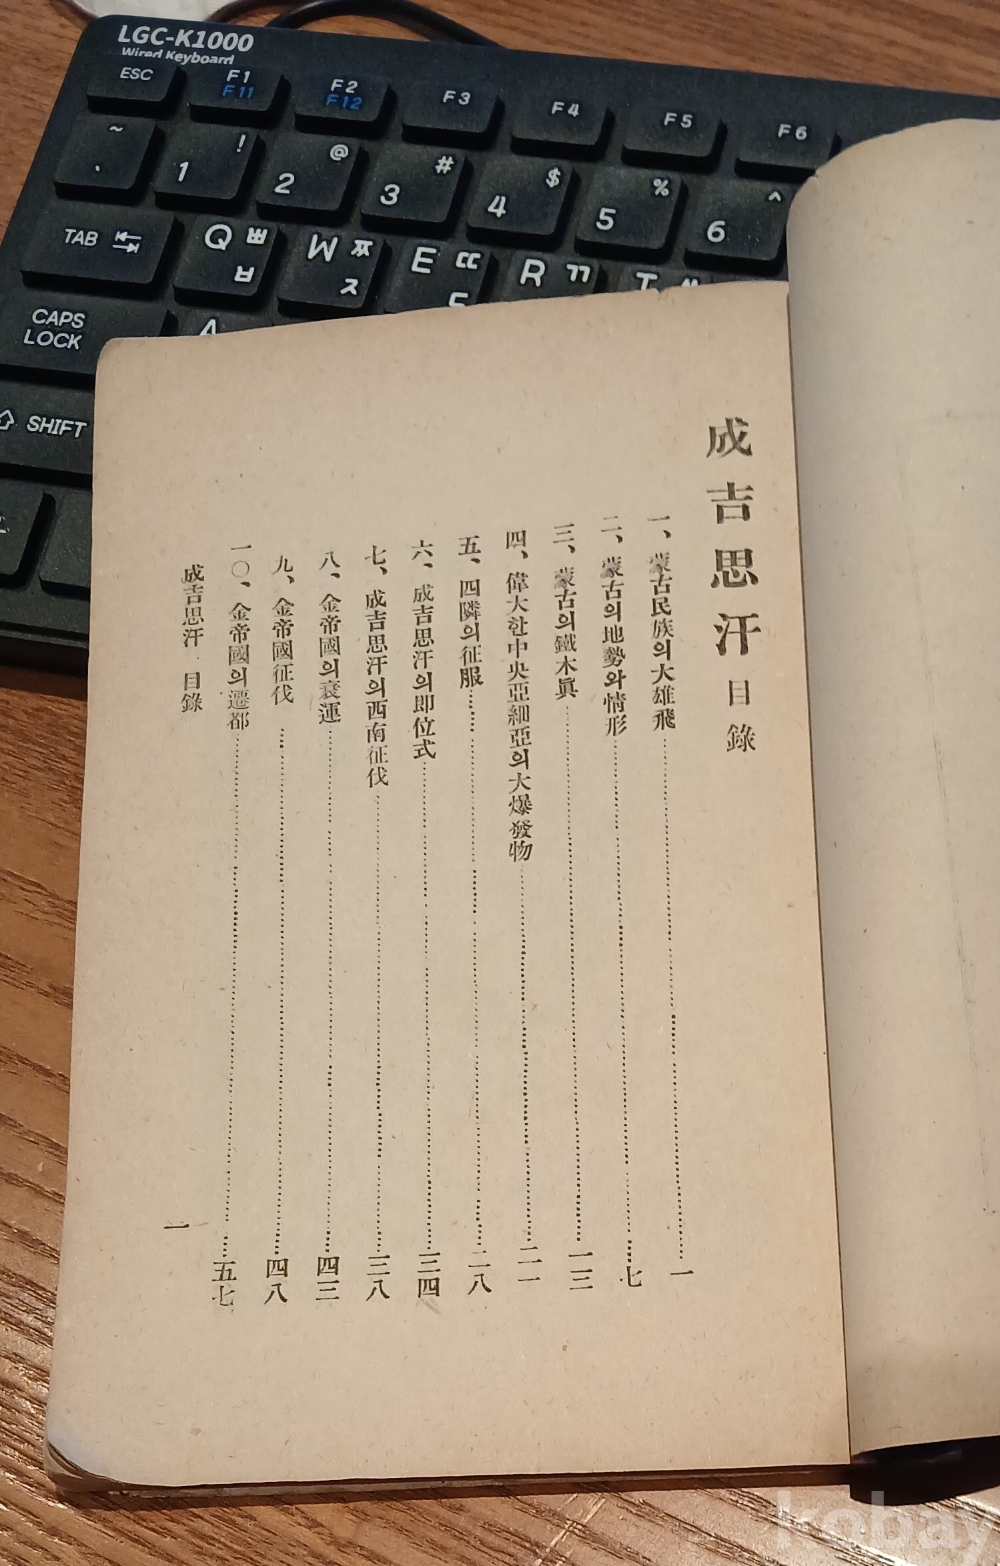 LGC-K1000
Wired Keyboard
ESC
F1
F11
F2
F12
F3
F4
F5
F6
~
!
1
@
2
#
3
$
4
%
5
^
6
TAB
Q ㅃ
ㅂ
W ㅉ
ㅈ
E ㄸ
R ㄲ
CAPS
LOCK
SHIFT
成吉思汗 目錄
一、蒙古民族의大雄飛……一
二、蒙古의地勢와情形……七
三、蒙古의鐵木眞……一三
四、偉大한中央亞細亞의大爆發物……二一
五、四隣의征服……二八
六、成吉思汗의即位式……三四
七、成吉思汗의西南征伐……三八
八、金帝國의衰運……四三
九、金帝國征伐……四八
一〇、金帝國의遷都……五七
成吉思汗 目錄
一
kobay